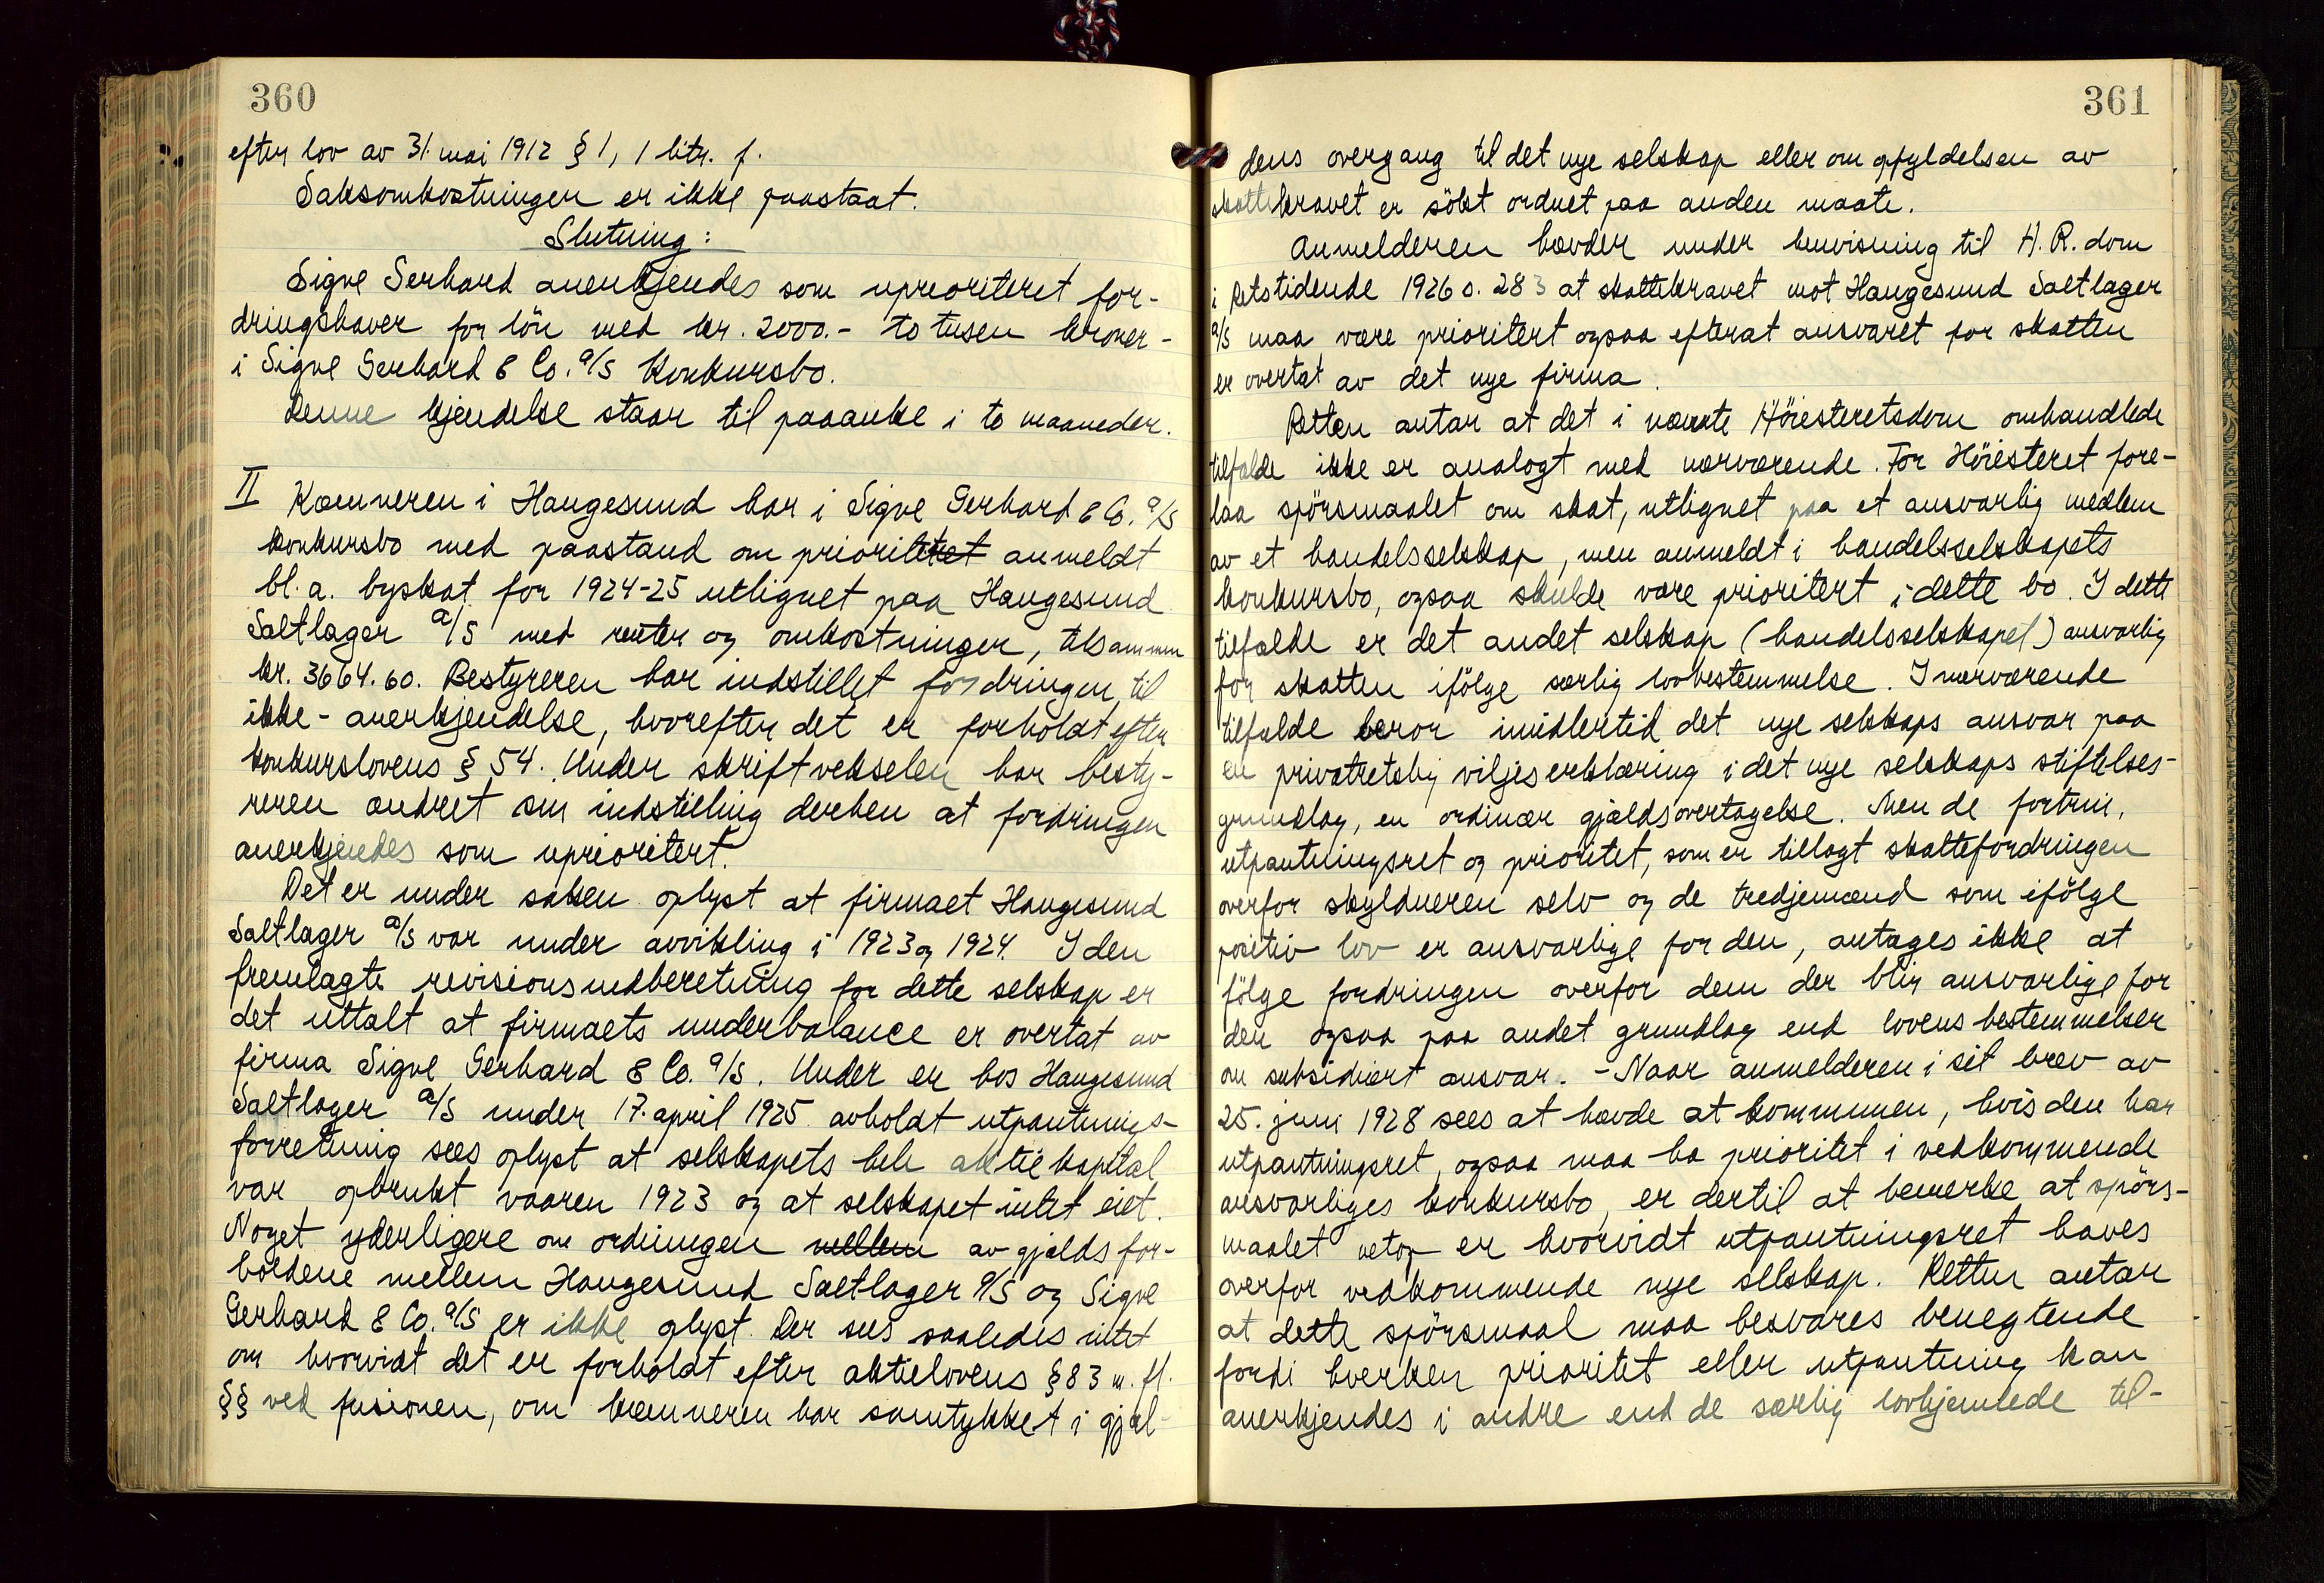 360
efter lov av 31. mai 1912 § 1, 1 litr. f.
Saksomkostninger er ikke paastaat.
Slutning:
Sigve Gerhard anerkjendes som uprioriteret for-
dringshaver for lön med kr. 2000.- to tusen kroner -
i Sigve Gerhard & Co. a/s Konkursbo.
Denne kjendelse staar til paaanke i to maaneder.
II Kæmneren i Haugesund har i Sigve Gerhard & Co. a/s
konkursbo med paastand om prioritetet anmeldt
bl. a. byskat for 1924-25 utlignet paa Haugesund
Saltlager a/s med renter og omkostninger, tilsammen
kr. 3664.60. Bestyreren har indstillet fordringen til
ikke-anerkjendelse, hvorefter det er forholdt efter
konkurslovens § 54. Under skriftvekselen har besty-
reren ændret sin indstilling derhen at fordringen
anerkjendes som uprioritert.
Det er under saken oplyst at firmaet Haugesund
Saltlager a/s var under avvikling i 1923 og 1924. I den
fremlagte revisionsindberetning for dette selskap er
det uttalt at firmaets underbalance er overtat av
firma Sigve Gerhard & Co. a/s. Under er hos Haugesund
Saltlager a/s under 17. april 1925 avholdt utpantnings-
forretning sees oplyst at selskapets hele aktiekapital
var opbrukt vaaren 1923 og at selskapet intet eiet.
Noget yderligere om ordningen mellem av gjældsfor-
holdene mellem Haugesund Saltlager a/s og Sigve
Gerhard & Co. a/s er ikke oplyst. Der sees saaledes intet
om hvorvidt det er forholdt efter aktielovens § 83 m. fl.
§§ ved fusionen, om kæmneren har samtykket i gjæl-
361
dens overgang til det nye selskap eller om opfyldelsen av
skattekravet er sökt ordnet paa anden maate.
Anmelderen hævder under henvisning til H. R. dom
i Retstidende 1926 s. 283 at skattekravet mot Haugesund Saltlager
a/s maa være prioritert ogsaa efterat ansvaret for skatten
er overtat av det nye firma.
Retten antar at det i nævnte Höiesteretsdom omhandlede
tilfælde ikke er analogt med nærværende. For Höiesteret fore-
laa spörsmaalet om skat, utlignet paa et ansvarlig medlem
av et handelsselskap, men anmeldt i handelsselskapets
konkursbo, ogsaa skulde være prioritert i dette bo. I dette
tilfælde er det andet selskap (handelsselskapet) ansvarlig
for skatten ifölge særlig lovbestemmelse. I nærværende
tilfælde beror imidlertid det nye selskaps ansvar paa
en privatretslig viljeserklæring i det nye selskaps stiftelses-
grundlag, en ordinær gjældsovertagelse. Men de fortrin,
utpantningsret og prioritet, som er tillagt skattefordringen
overfor skyldneren selv og de tredjemænd som ifölge
positiv lov er ansvarlige for den, antages ikke at
fölge fordringen overfor dem der blir ansvarlige for
den ogsaa paa andet grundlag end lovens bestemmelser
om subsidiært ansvar. - Naar anmelderen i sit brev av
25. juni 1928 sees at hævde at kommunen, hvis den har
utpantningsret, ogsaa maa ha prioritet i vedkommende
ansvarliges konkursbo, er dertil at bemerke at spörs-
maalet netop er hvorvidt utpantningsret haves
overfor vedkommende nye selskap. Retten antar
at dette spörsmaal maa besvares benegtende
fordi hverken prioritet eller utpantning kan
anerkjendes i andre end de særlig lovhjemlede til-